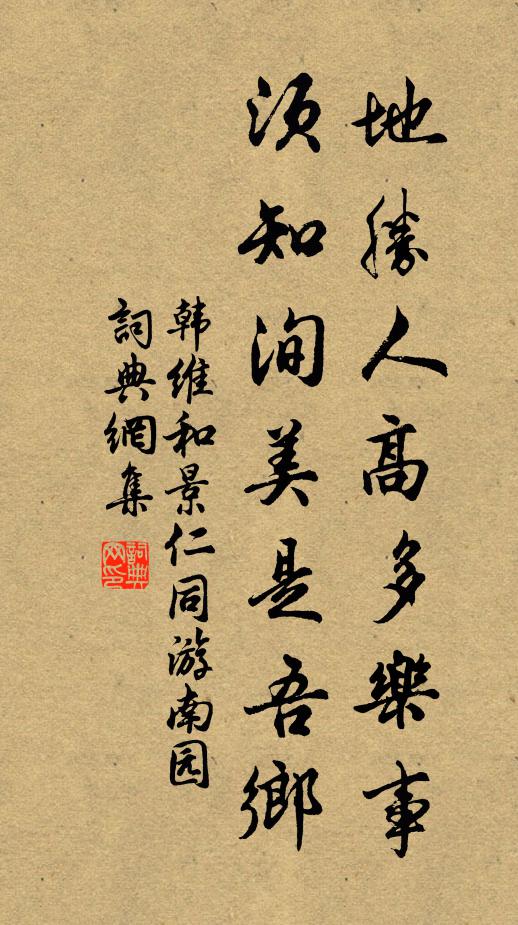 地勝人高多樂事
須知洵美是吾鄉
韩维和景仁同游南园
詞典網集
詞典网印